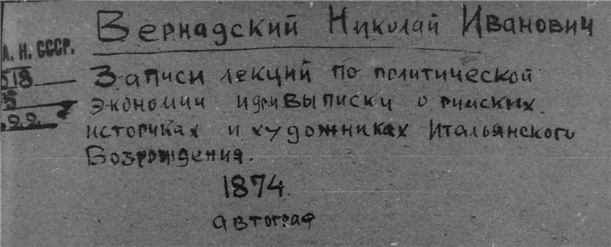 Вернадский Николай Иванович
А. Н. СССР.
518
Записи лекций по политической
экономии и выписки о римских
историках и художниках Итальянского
Возрождения.
1874
автограф